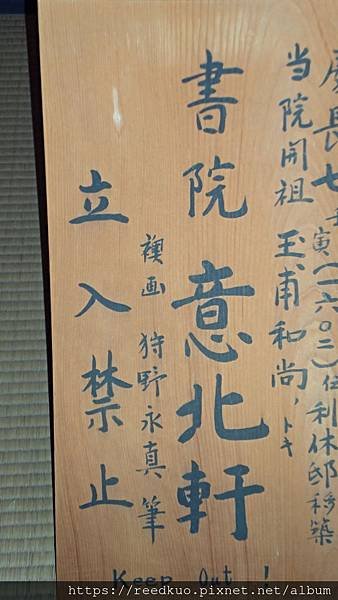 慶長七壬寅(一六〇二)伝利休邸移築
当院開祖 玉甫和尚,トキ
書院 意北軒
襖画 狩野永真筆
立入禁止
Keep Out !
https://reedkuo.pixnet.net/album